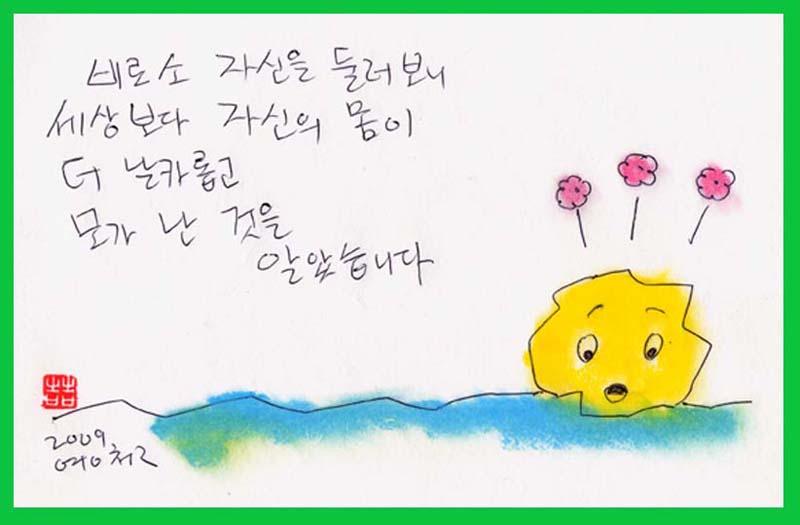 비로소 자신을 둘러보니
세상보다 자신의 몸이
더 날카롭고
모가 난 것을
알았습니다
2009.